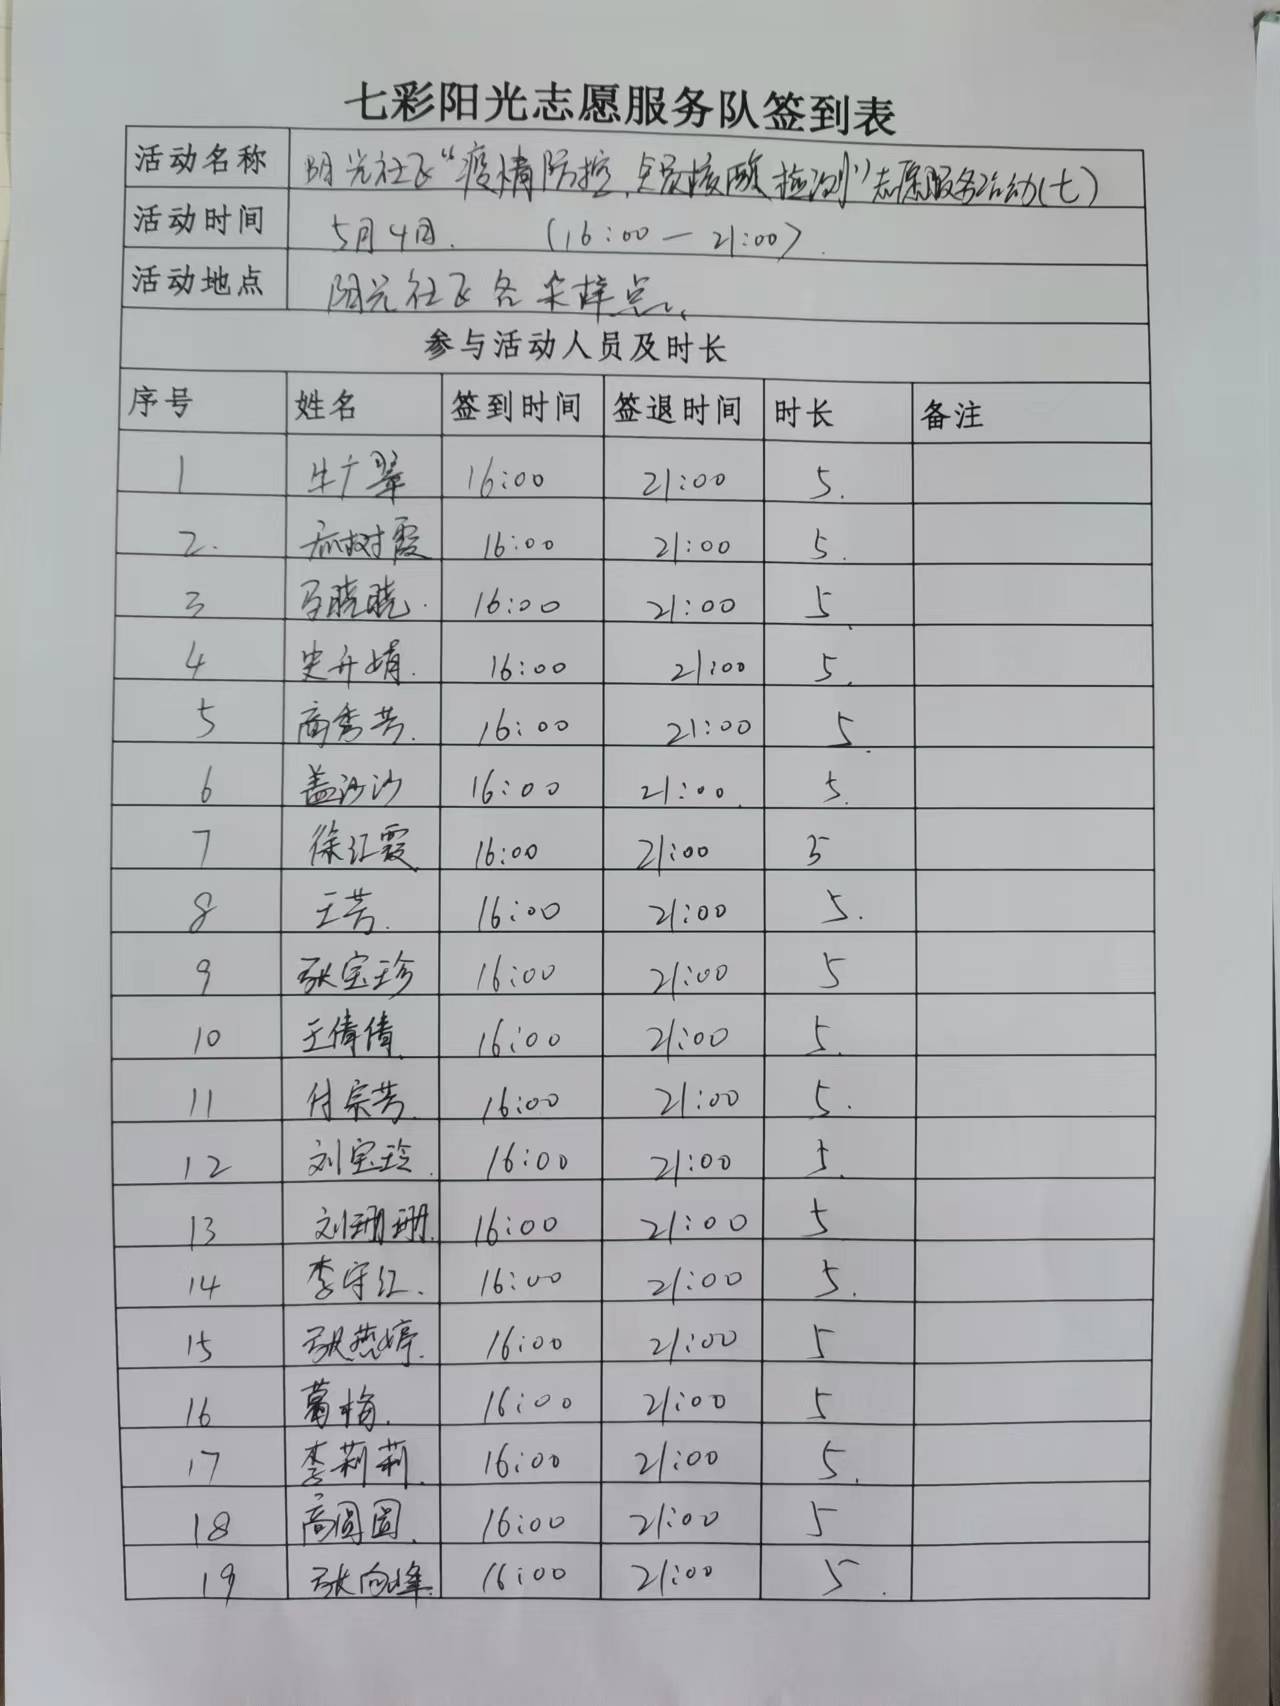 七彩阳光志愿服务队签到表
活动名称 阳光社区“疫情防控,全员核酸检测”志愿服务活动(七)
活动时间 5月4日. (16:00—21:00).
活动地点 阳光社区各采样点.
参与活动人员及时长
序号 姓名 签到时间 签退时间 时长 备注
1 牛广翠 16:00 21:00 5.
2. 树霞 16:00 21:00 5.
3 马晓晓. 16:00 21:00 5.
4 史丹娟. 16:00 21:00 5.
5 商秀芳. 16:00 21:00 5.
6 盖沙沙 16:00 21:00. 5.
7 徐红霞 16:00 21:00 5
8 王芳. 16:00 21:00 5.
9 张宝珍 16:00 21:00 5
10 王倩倩. 16:00 21:00 5.
11 付宗芳. 16:00 21:00 5.
12 刘宝玲. 16:00 21:00 5.
13 刘珊珊. 16:00 21:00 5
14 李守红. 16:00 21:00 5.
15 张燕婷. 16:00 21:00 5
16 葛梅. 16:00 21:00 5
17 李莉莉. 16:00 21:00 5.
18 高圆圆. 16:00 21:00 5
19 张向峰. 16:00 21:00 5.